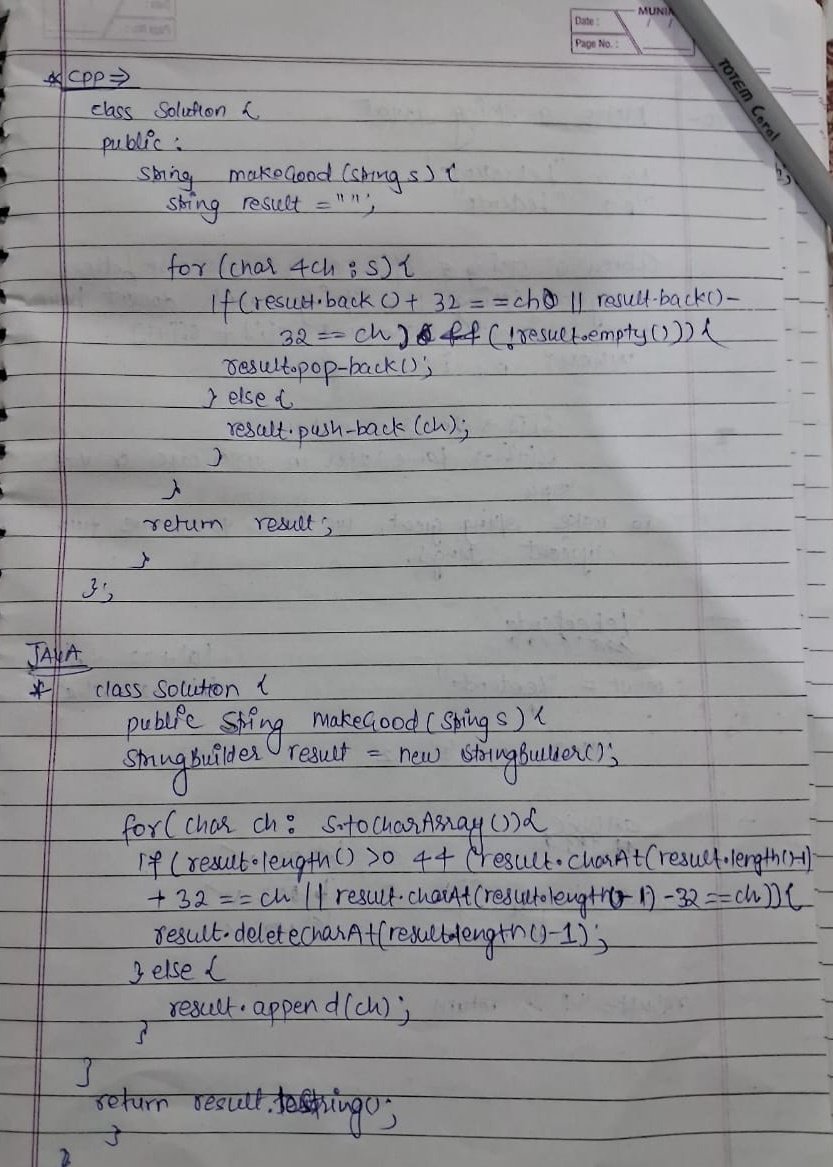 MUNI
Date :
Page No. :
TOTEM Coral
* CPP ⇒
class Solution {
public :
string makeGood (string s) {
string result = "" ;
for (char &ch : s) {
if (result.back () + 32 == ch || result.back() -
32 == ch ) && (!result.empty())) {
result.pop-back();
} else {
result.push-back (ch);
}
}
return result ;
}
};
JAVA
* class Solution {
public String makeGood ( String s) {
StringBuilder result = new StringBuilder();
for( char ch : s.toCharArray ()) {
if ( result.length() >0 && (result.charAt(result.length()-1)
+ 32 == ch || result.charAt(result.length()-1) -32 ==ch)) {
result.deletecharAt(result.length()-1);
} else {
result.append(ch);
}
}
return result.toString();
}
}